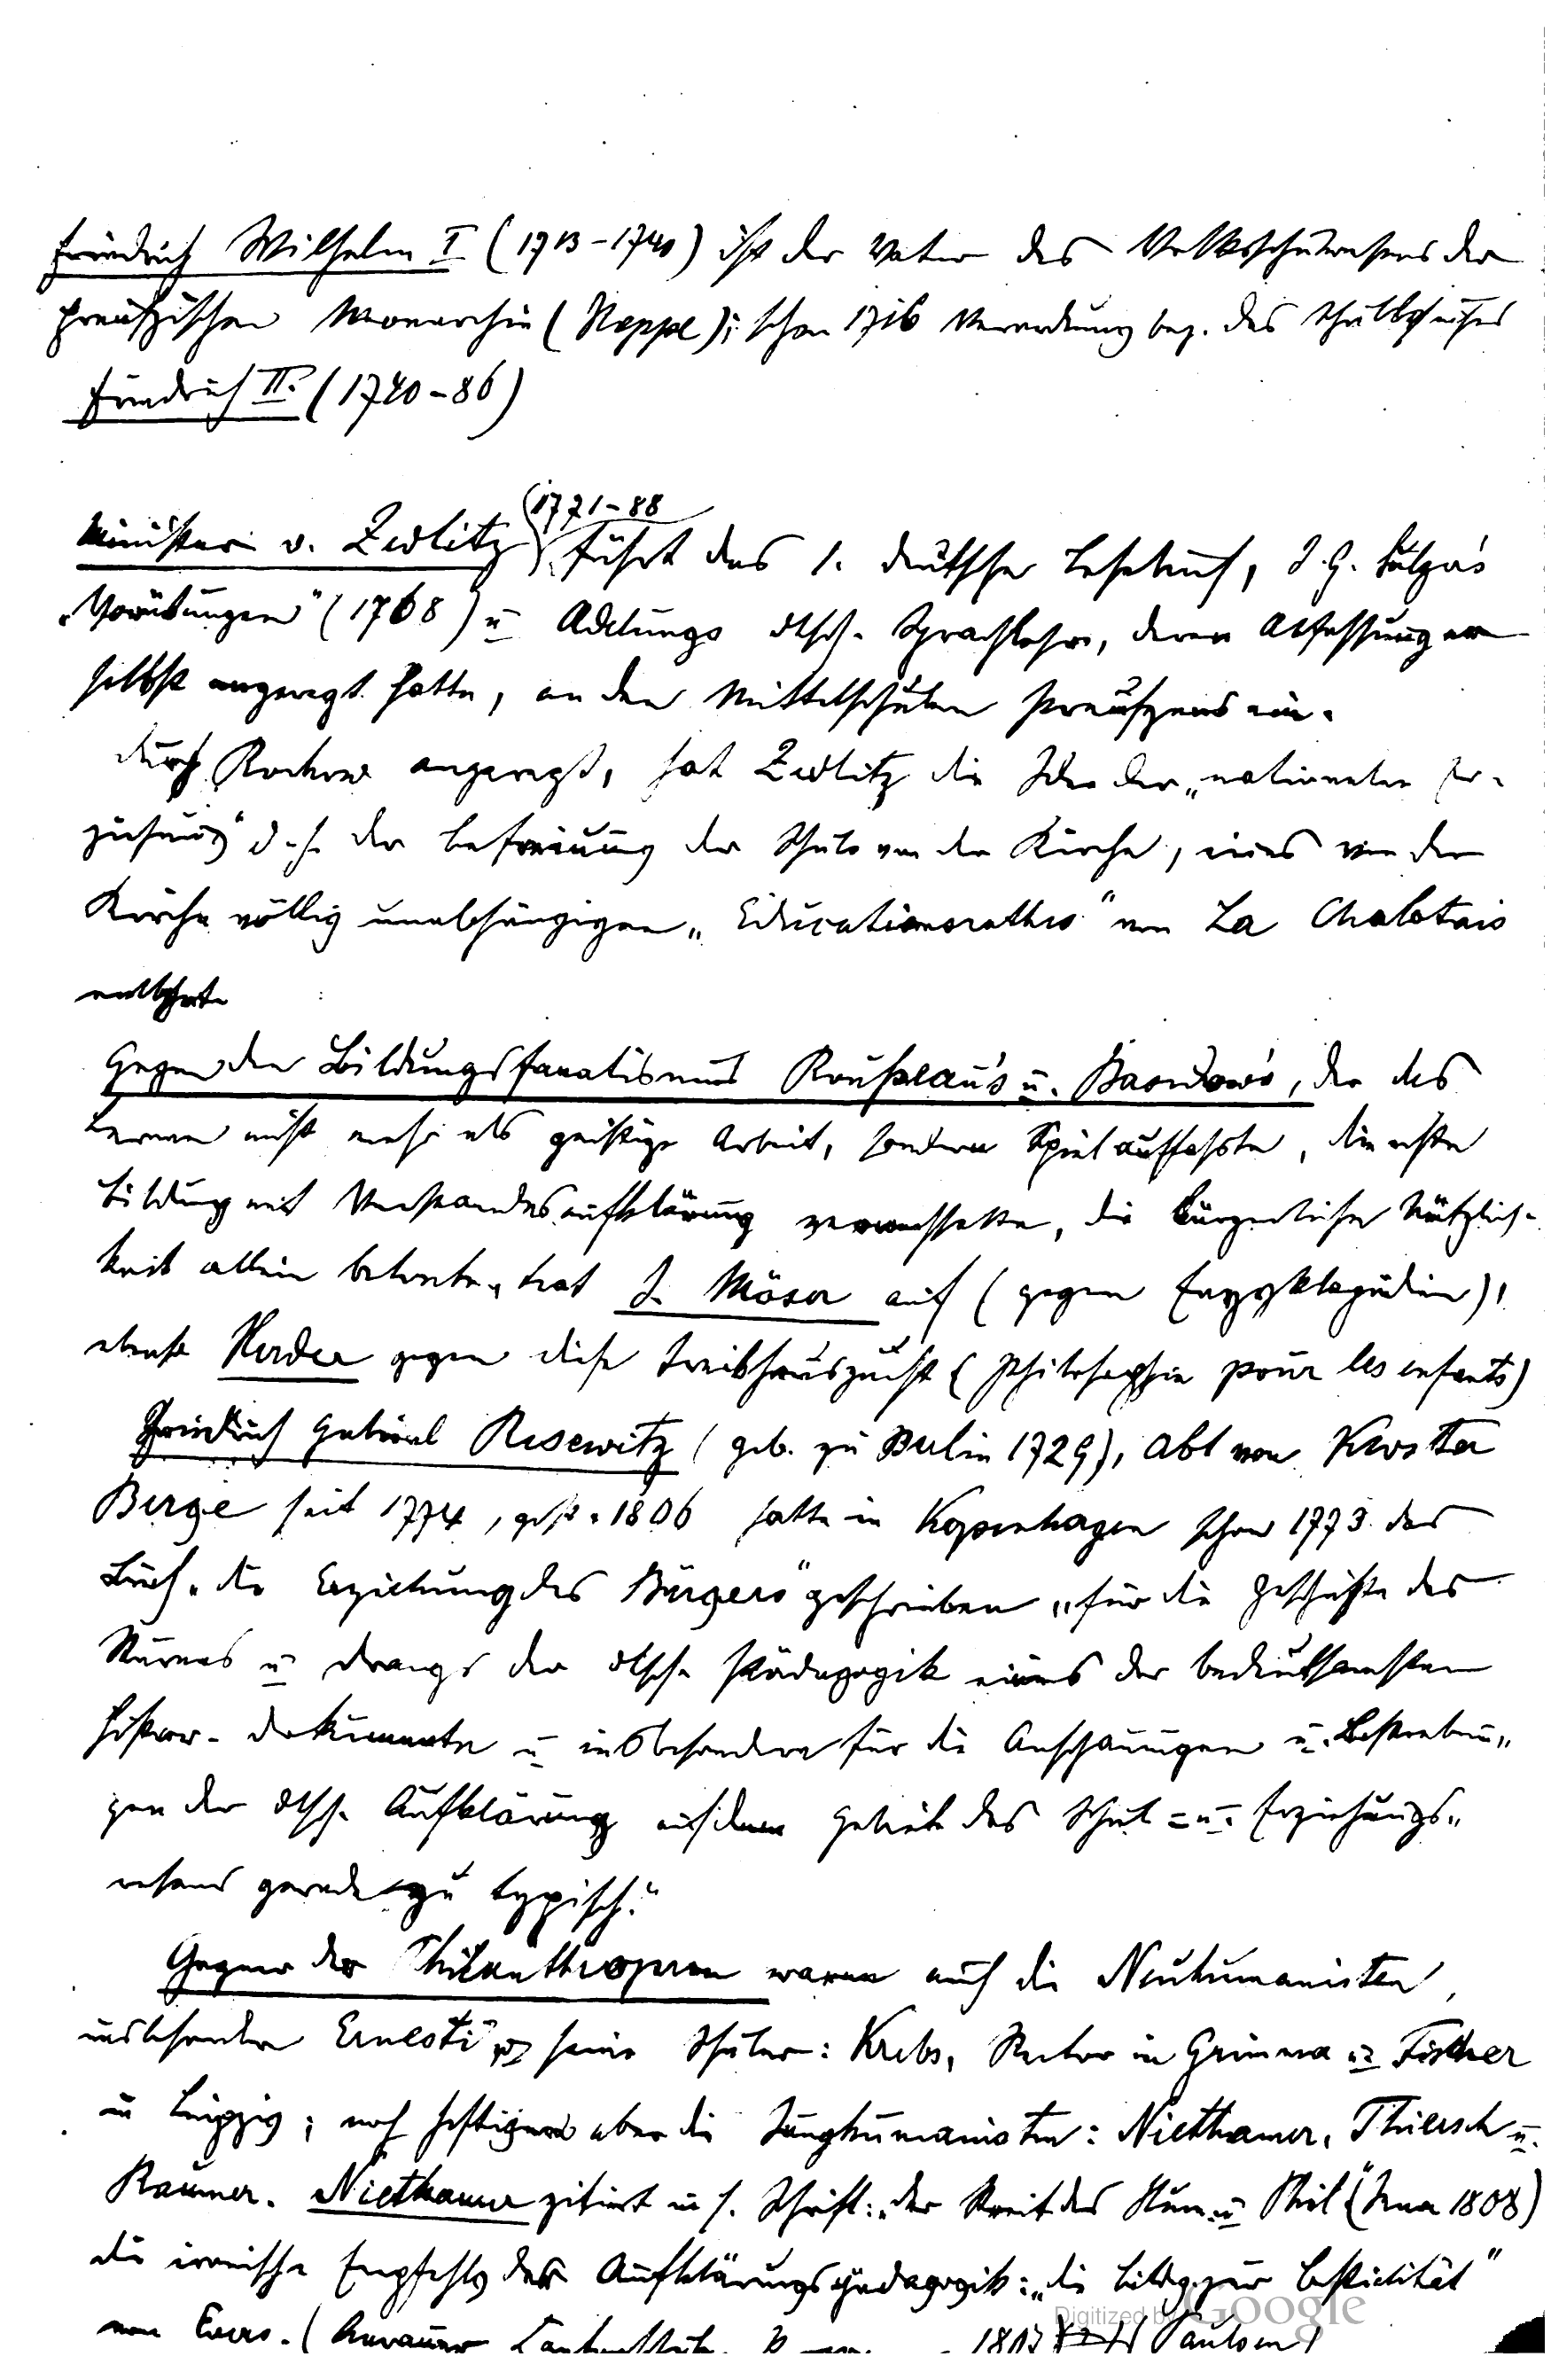 Friedrich Wilhelm I (1713-1740) ist der Vater des Volksschulwesens der
preußischen Monarchie (Heppe); schon 1716 Verordnung bez. des Schulbesuches
Friedrich II. (1740-86)
(1771-88
Minister v. Zedlitz) führt das 1. deutsche Lesebuch, J. G. Sulzers
„Vorübungen" (1768) u Adelungs dtsch. Sprachlehre, deren Abfassung er
selbst angeregt hatte, an den Mittelschulen Preußens ein.
Durch Rochow angeregt, hat Zedlitz die Idee der „nationalen Er-
ziehung" d. h. der Befreiung der Schule von der Kirche, eines von der
Kirche völlig unabhängigen „Educationsrathes" von La Chalotais
entlehnt.
Gegen den Bildungsfanatismus Rousseau's u. Basedow's, der das
Lernen nicht mehr als geistige Arbeit, sondern Spiel auffasste, die echte
Bildung mit Verstandesaufklärung verwechselte, die bürgerliche Nützlich-
keit allein betonte, trat J. Möser auf (gegen Enzyklopädien),
ebenso Herder gegen diese Treibhauszucht (Philosophie pour les enfants)
Friedrich Gabriel Resewitz (geb. zu Berlin 1729), Abt von Kloster
Berge seit 1774, gest. 1806 hatte in Kopenhagen schon 1773 das
Buch „die Erziehung des Bürgers" geschrieben „für die Geschichte des
Sturmes u Drangs der dtsch. Pädagogik eines der bedeutsamsten
histor. Dokumente u insbesondere für die Anschauungen u. Bestrebun„
gen der dtsch. Aufklärung auf dem Gebiete des Schul = u. Erziehungs„
wesens geradezu typisch."
Gegner der Philanthropen waren auch die Neuhumanisten,
insbesondere Ernesti u seine Schüler: Krebs, Rektor in Grimma u Fischer
in Leipzig; noch heftiger aber die Junghumanisten: Niethamer, Thiersch u.
Raumer. Niethamer zitiert in s. Schrift: „der Streit des Hum. u Phil" (Jena 1808)
die ironische Empfehlg der Aufklärungspädagogik: „die Bildg. zur Bestialität"
von Evers. (Aarauer 1807 Paulsen)
Digitized by Google